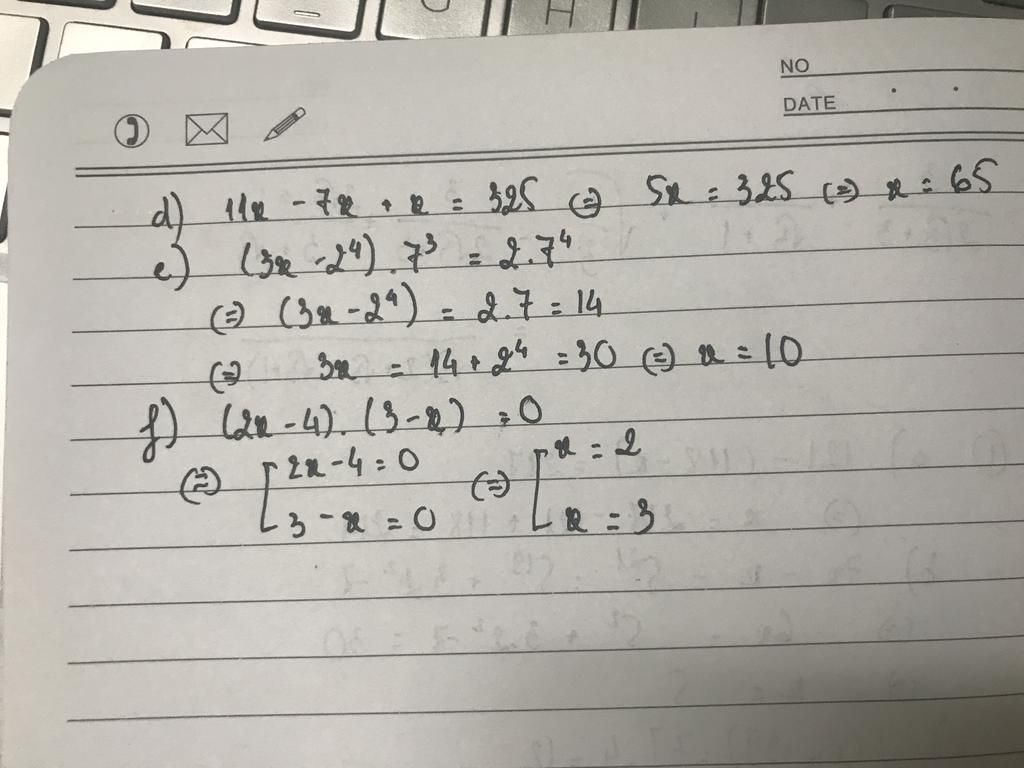 NO
DATE
d) 11x - 7x + x = 325 (=) 5x = 325 (=) x = 65
e) (3x - 2⁴) . 7³ = 2.7⁴
(=) (3x - 2⁴) = 2.7 = 14
(=) 3x = 14 + 2⁴ = 30 (=) x = 10
f) (2x - 4). (3 - x) = 0
(=) [ 2x - 4 = 0 (=) [ x = 2
3 - x = 0 x = 3